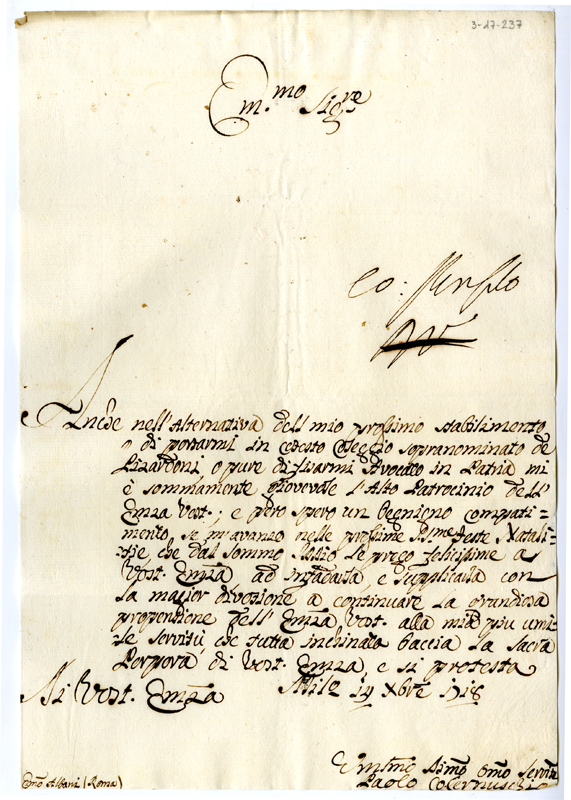 3-17-237
Em.mo Sig.re
Anche nell'Alternativa dell mio prossimo stabilimento
o di portarmi in cotesto Coleggio sopranominato de
o pure di fisarmi Avocato in Patria mi
è sommamente giovevole l'Alto Patrocinio dell'
Emza Vost.; e però spero un benigno compati-
mento, se m'avanzo nelle prossime SS.me feste Natali-
tie, che dal sommo Iddio le prego felicissime a
Vost. Emza ad infadarla, e supplicarla con
la magior divotione a continuare la grandiosa
propentione dell'Emza Vost. alla mia più umi-
le servitù, che tutta inchinata baccia la sacra
Porpora di Vost. Emza, e si protesta
Di Vost. Emza Milo 14 Xbre 1718
Vmilmo Divmo Obmo Servitre
Paolo
Emo Albani (Roma)